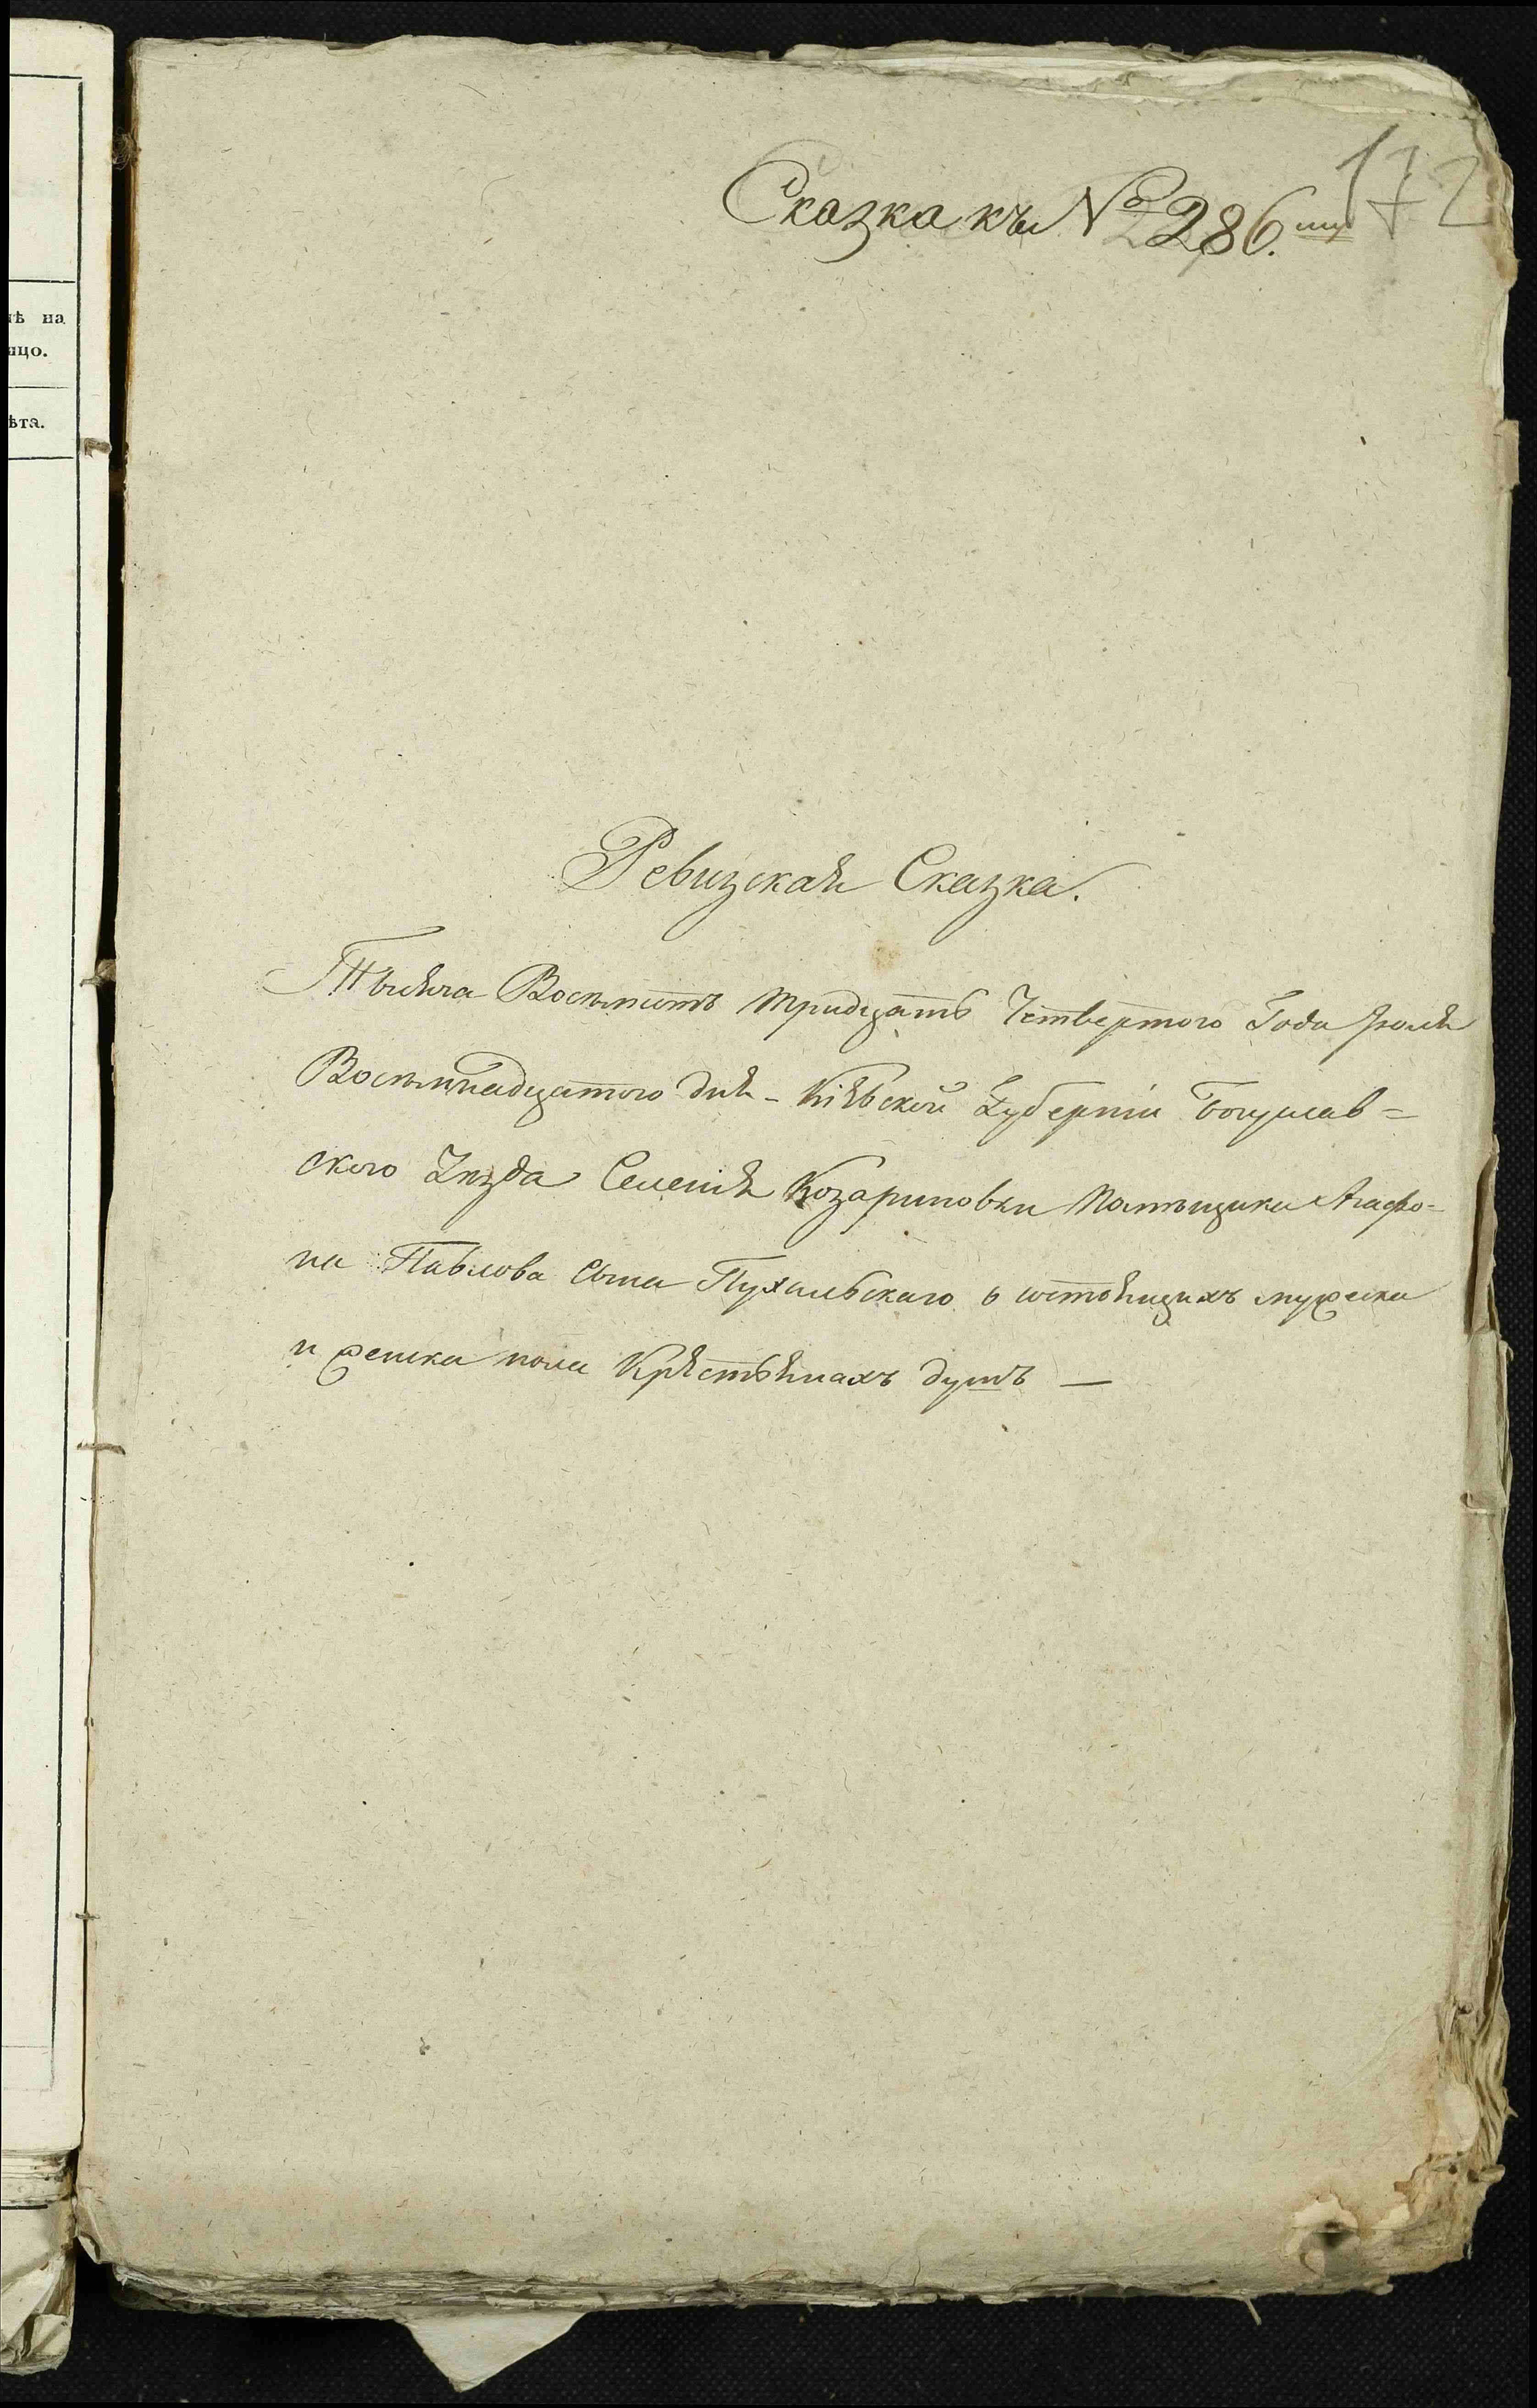 172
Сказка къ № 286.му
Ревизская Сказка.
Тысяча Восѣмъсотъ тридцать Четвертого Года Іюля
Восѣмнадцатого дня - Кіевской Губерніи Богуслав=
ского Уѣзда Селенія Козариновки Помѣщика Агафо=
на Павлова Сына Пухальскаго о состоящихъ мужеска
и женска пола Крестьянахъ душъ —
ѣ на
ицо.
ѣта.